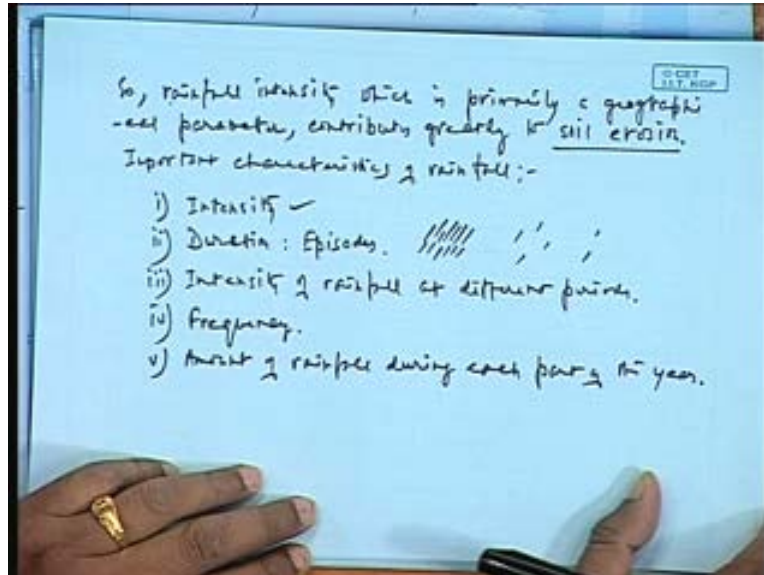 © CET
I.I.T. KGP
So, rainfall intensity which is primarily a geographi
-cal parameter, contributes greatly to soil erosion.
Important characteristics of rainfall:-
i) Intensity
ii) Duration : Episodes.
iii) Intensity of rainfall at different periods.
iv) Frequency.
v) Amount of rainfall during each part of the year.